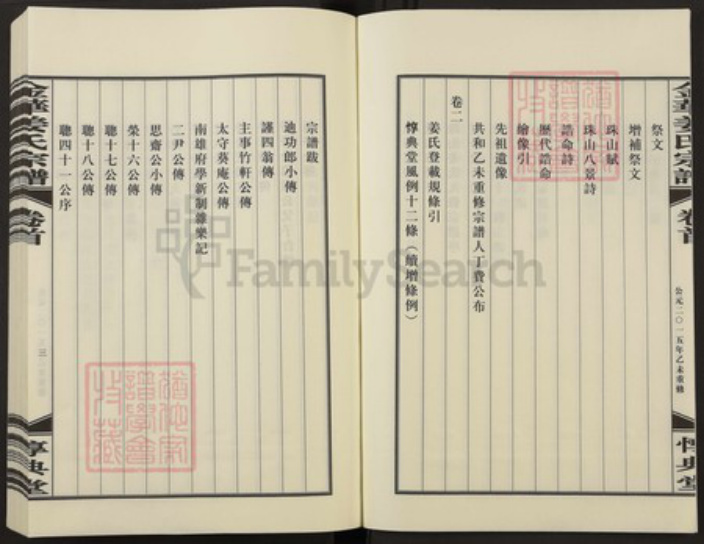 金華姜氏宗譜
卷首
公元二〇一五年乙未重修
惇典堂
祭文
增補祭文
珠山賦
珠山八景詩
誥命詩
歷代誥命
繪像引
先祖遺像
共和乙未重修宗譜人丁費公布
卷二
姜氏登載規條引
惇典堂風例十二條（續增條例）
宗譜跋
迪功郎小傳
謹四翁傳
主事竹軒公傳
太守葵庵公傳
南雄府學新制雜樂記
二尹公傳
思齋公小傳
榮十六公傳
聰十七公傳
聰十八公傳
聰四十一公序
金華姜氏宗譜
卷首
三
惇典堂
FamilySearch